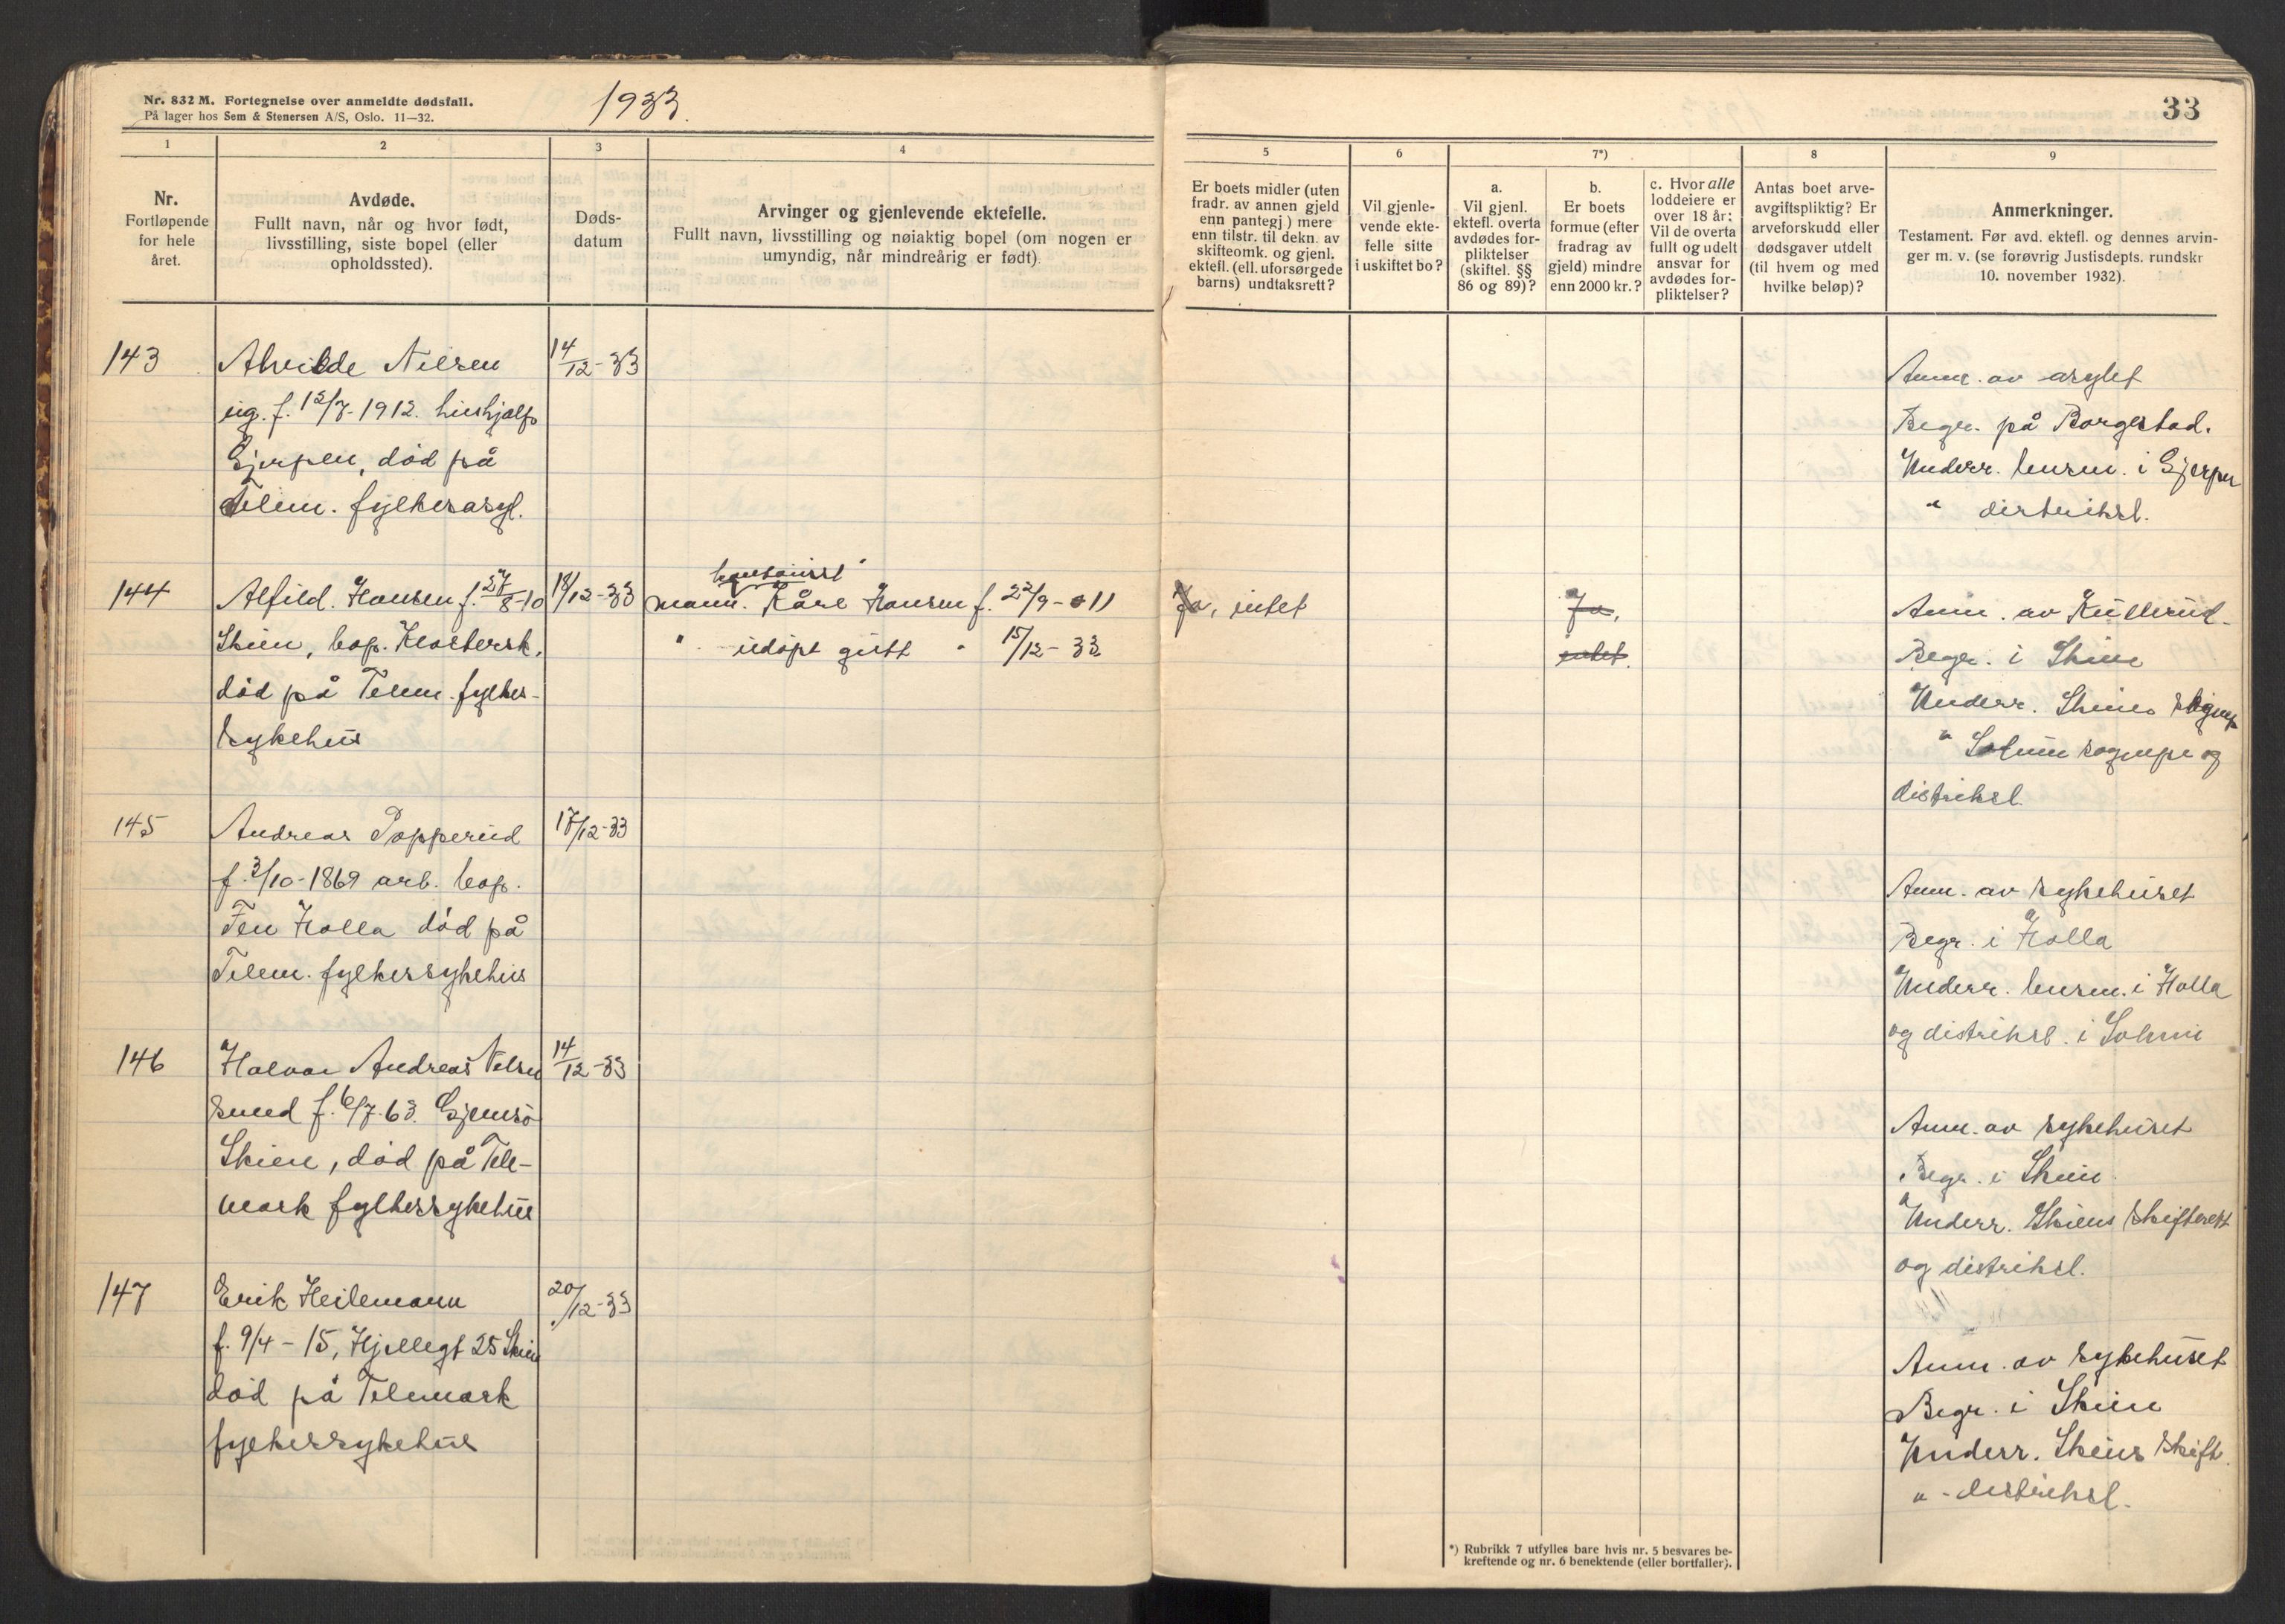 Nr. 832 M. Fortegnelse over anmeldte dødsfall.
På lager hos Sem & Stenersen A/S, Oslo. 11—32.
1933.
1
2
3
4
Nr.
Fortløpende
for hele
året.
Avdøde.
Fullt navn, når og hvor født,
livsstilling, siste bopel (eller
opholdssted).
Døds-
datum
Arvinger og gjenlevende ektefelle.
Fullt navn, livsstilling og nøiaktig bopel (om nogen er
umyndig, når mindreårig er født).
143
Alvilde Nilsen
ug. f. 12/7-1912. hushjælp
Gjerpen, död på
Telem. fylkesasyl.
14/12-33
144
Alfild. Hansen f. 27/8-10
Skien, bop. Klostersk.
död på Telem. fylkes-
sykehus
18/12-33
kontorist
mann. Kåre Hansen f. 22/9-11
" udöpt gutt " 15/12-33
145
Andreas Popperud
f. 3/10-1869 arb. bop.
Fen Holla död på
Telem. fylkessykehus
17/12-33
146
Halvor Andreas Nilsen
smed f. 6/7-63. Gjemsö
Skien, död på Tele-
mark fylkessykehus
14/12-33
147
Erik Heilemann
f. 9/4-15, Hjellegt 25 Skien
död på Telemark
fylkessykehus
20/12-33
33
5
6
7*)
8
9
Er boets midler (uten
fradr. av annen gjeld
enn pantegj) mere
enn tilstr. til dekn. av
skifteomk. og gjenl.
ektefl. (ell. uforsørgede
barns) undtaksrett?
Vil gjenle-
vende ekte-
felle sitte
i uskiftet bo?
a.
Vil gjenl.
ektefl. overta
avdødes for-
pliktelser
(skiftel. §§
86 og 89)?
b.
Er boets
formue (efter
fradrag av
gjeld) mindre
enn 2000 kr.?
c. Hvor alle
loddeiere er
over 18 år:
Vil de overta
fullt og udelt
ansvar for
avdødes for-
pliktelser?
Antas boet arve-
avgiftspliktig? Er
arveforskudd eller
dødsgaver utdelt
(til hvem og med
hvilke beløp)?
Anmerkninger.
Testament. Før avd. ektefl. og dennes arvin-
ger m. v. (se forøvrig Justisdepts. rundskr
10. november 1932).
Anm. av asylet
Begr. på Borgestad.
Underr. lensm. i Gjerpen
" distriksl.
Ja, intet
Ja,
intet.
Anm. av Kullerud
Begr. i Skien
Underr. Skiens
" Solum sognepr og
distriksl.
Anm. av sykehuset
Begr. i Holla
Underr. lensm. i Holla
og distriksl. i Solum
Anm. av sykehuset
Begr. i Skien
Underr. Skiens skifterett
og distriksl.
Anm. av sykehuset
Begr. i Skien
Underr. Skiens skift.
" - distriksl.
*) Rubrikk 7 utfylles bare hvis nr. 5 besvares be-
kreftende og nr. 6 benektende (eller bortfaller).